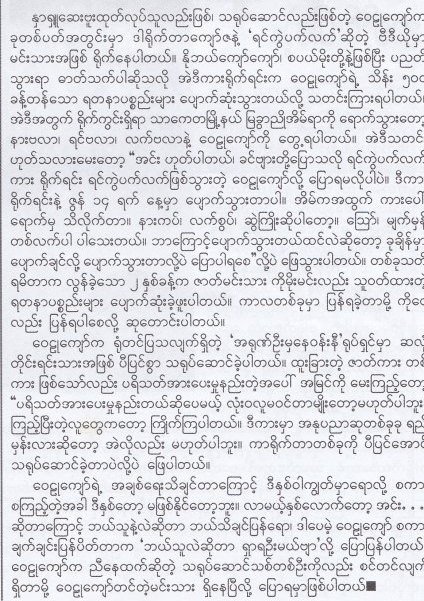 နာရှူဆေးဗူးထုတ်လုပ်သူလည်းဖြစ်၊ သရုပ်ဆောင်လည်းဖြစ်တဲ့ ဝေဠုကျော်က
ခုတစ်ပတ်အတွင်းမှာ ဒါရိုက်တာကျော်ဇန်နဲ့ 'ရင်ကွဲပက်လက်'ဆိုတဲ့ ဗီဒီယိုမှာ
မင်းသားအဖြစ် ရိုက်နေပါတယ်။ နိုဘယ်ကျော်ကျော်၊ စပယ်မိုးတို့နဲ့ဖြစ်ပြီး ပညတ်
သွားရာ ဓာတ်သက်ပါဆိုသလို အဲဒီကားရိုက်ရင်းက ဝေဠုကျော်ရဲ့ သိန်း ၅၀၀
ခန့်တန်သော ရတနာပစ္စည်းများ ပျောက်ဆုံးသွားတယ်လို့ သတင်းကြားရပါတယ်၊
အဲဒီအတွက် ရိုက်ကွင်းရှိရာ သာကေတမြို့နယ် မြခွာညိုအိမ်ရာကို ရောက်သွားတော့
နားဗလာ၊ ရင်ဗလာ၊ လက်ဗလာနဲ့ ဝေဠုကျော်ကို တွေ့ရပါတယ်။ အဲဒီသတင်း
ဟုတ်သလားမေးတော့ "အင်း ဟုတ်ပါတယ်၊ ခင်ဗျားတို့ပြောသလို ရင်ကွဲပက်လက်
ကား ရိုက်ရင်း ရင်ကွဲပက်လက်ဖြစ်သွားတဲ့ ဝေဠုကျော်လို့ ပြောရမလိုပါပဲ။ ဒီကား
ရိုက်ရင်းနဲ့ ဇွန် ၁၄ ရက် နေ့မှာ ပျောက်သွားတာပါ။ အိမ်ကအထွက် ကားပေါ်
ရောက်မှ သိလိုက်တာ။ နားကပ်၊ လက်စွပ်၊ ဆွဲကြိုးဆိုပါတော့။ သြော်၊ မျက်မှန်
တစ်လက်ပါ ပါသေးတယ်။ ဘာကြောင့်ပျောက်သွားတယ်ထင်လဲဆိုတော့ ခုချိန်မှာ
ပျောက်ချင်လို့ ပျောက်သွားတာလို့ပဲ ပြောပါရစေ"လို့ပဲ ဖြေသွားပါတယ်။ တစ်ခုသတိ
ရမိတာက လွန်ခဲ့သော ၂ နှစ်ခန့်က ဇာတ်မင်းသား ကိုမိုးမင်းလည်း သူဝတ်ထားတဲ့
ရတနာပစ္စည်းများ ပျောက်ဆုံးခဲ့ဖူးပါတယ်။ ကာလတစ်ခုမှာ ပြန်ရခဲ့တာမို့ ကိုဝေ
လည်း ပြန်ရပါစေလို့ ဆုတောင်းပါတယ်။
ဝေဠုကျော်က ရုံတင်ပြသလျက်ရှိတဲ့ 'အရုဏ်ဦးမှနေဝန်းနီ'ရုပ်ရှင်မှာ ဆလုံ
တိုင်းရင်းသားအဖြစ် ပီပြင်စွာ သရုပ်ဆောင်ခဲ့ပါတယ်။ ထူးခြားတဲ့ ဇာတ်ကား တစ်
ကား ဖြစ်သော်လည်း ပရိသတ်အားပေးမှုနည်းတဲ့အပေါ် အမြင်ကို မေးကြည့်တော့
"ပရိသတ်အားပေးမှုနည်းတယ်ဆိုပေမယ့် လုံးဝလူမဝင်တာမျိုးတော့မဟုတ်ပါဘူး၊
ကြည့်ပြီးတဲ့လူတွေကတော့ ကြိုက်ကြပါတယ်။ ဒီကားမှာ အနုပညာဆုတစ်ခုခု ရည်
မှန်းလားဆိုတော့ အဲလိုလည်း မဟုတ်ပါဘူး။ ကာရိုက်တာတစ်ခုကို ပီပြင်အောင်
သရုပ်ဆောင်ခဲ့တာပဲလို့ပဲ ဖြေပါတယ်။
ဝေဠုကျော်ရဲ့ အချစ်ရေးသိချင်တာကြောင့် ဒီနှစ်ဝါကျွတ်မှာရောလို့ စကား
စကြည့်တဲ့အခါ ဒီနှစ်တော့ မဖြစ်နိုင်တော့ဘူး။ လာမယ့်နှစ်လောက်တော့ အင်း. . .
ဆိုတာကြောင့် ဘယ်သူနဲ့လဲဆိုတာ ဘယ်သိချင်ပြန်ရော၊ ဒါပေမဲ့ ဝေဠုကျော် စကား
ချက်ချင်းပြန်ပိတ်တာက 'ဘယ်သူလဲဆိုတာ ရှာရဦးမယ်ဗျာ'လို့ ပြောပြန်ပါတယ်
ဝေဠုကျော်က ညီနေထက်ဆိုတဲ့ သရုပ်ဆောင်သစ်တစ်ဦးကိုလည်း စင်တင်လျက်
ရှိတာမို့ ဝေဠုကျော်တင်တဲ့မင်းသား ရှိနေပြီလို့ ပြောရမှာဖြစ်ပါတယ်■